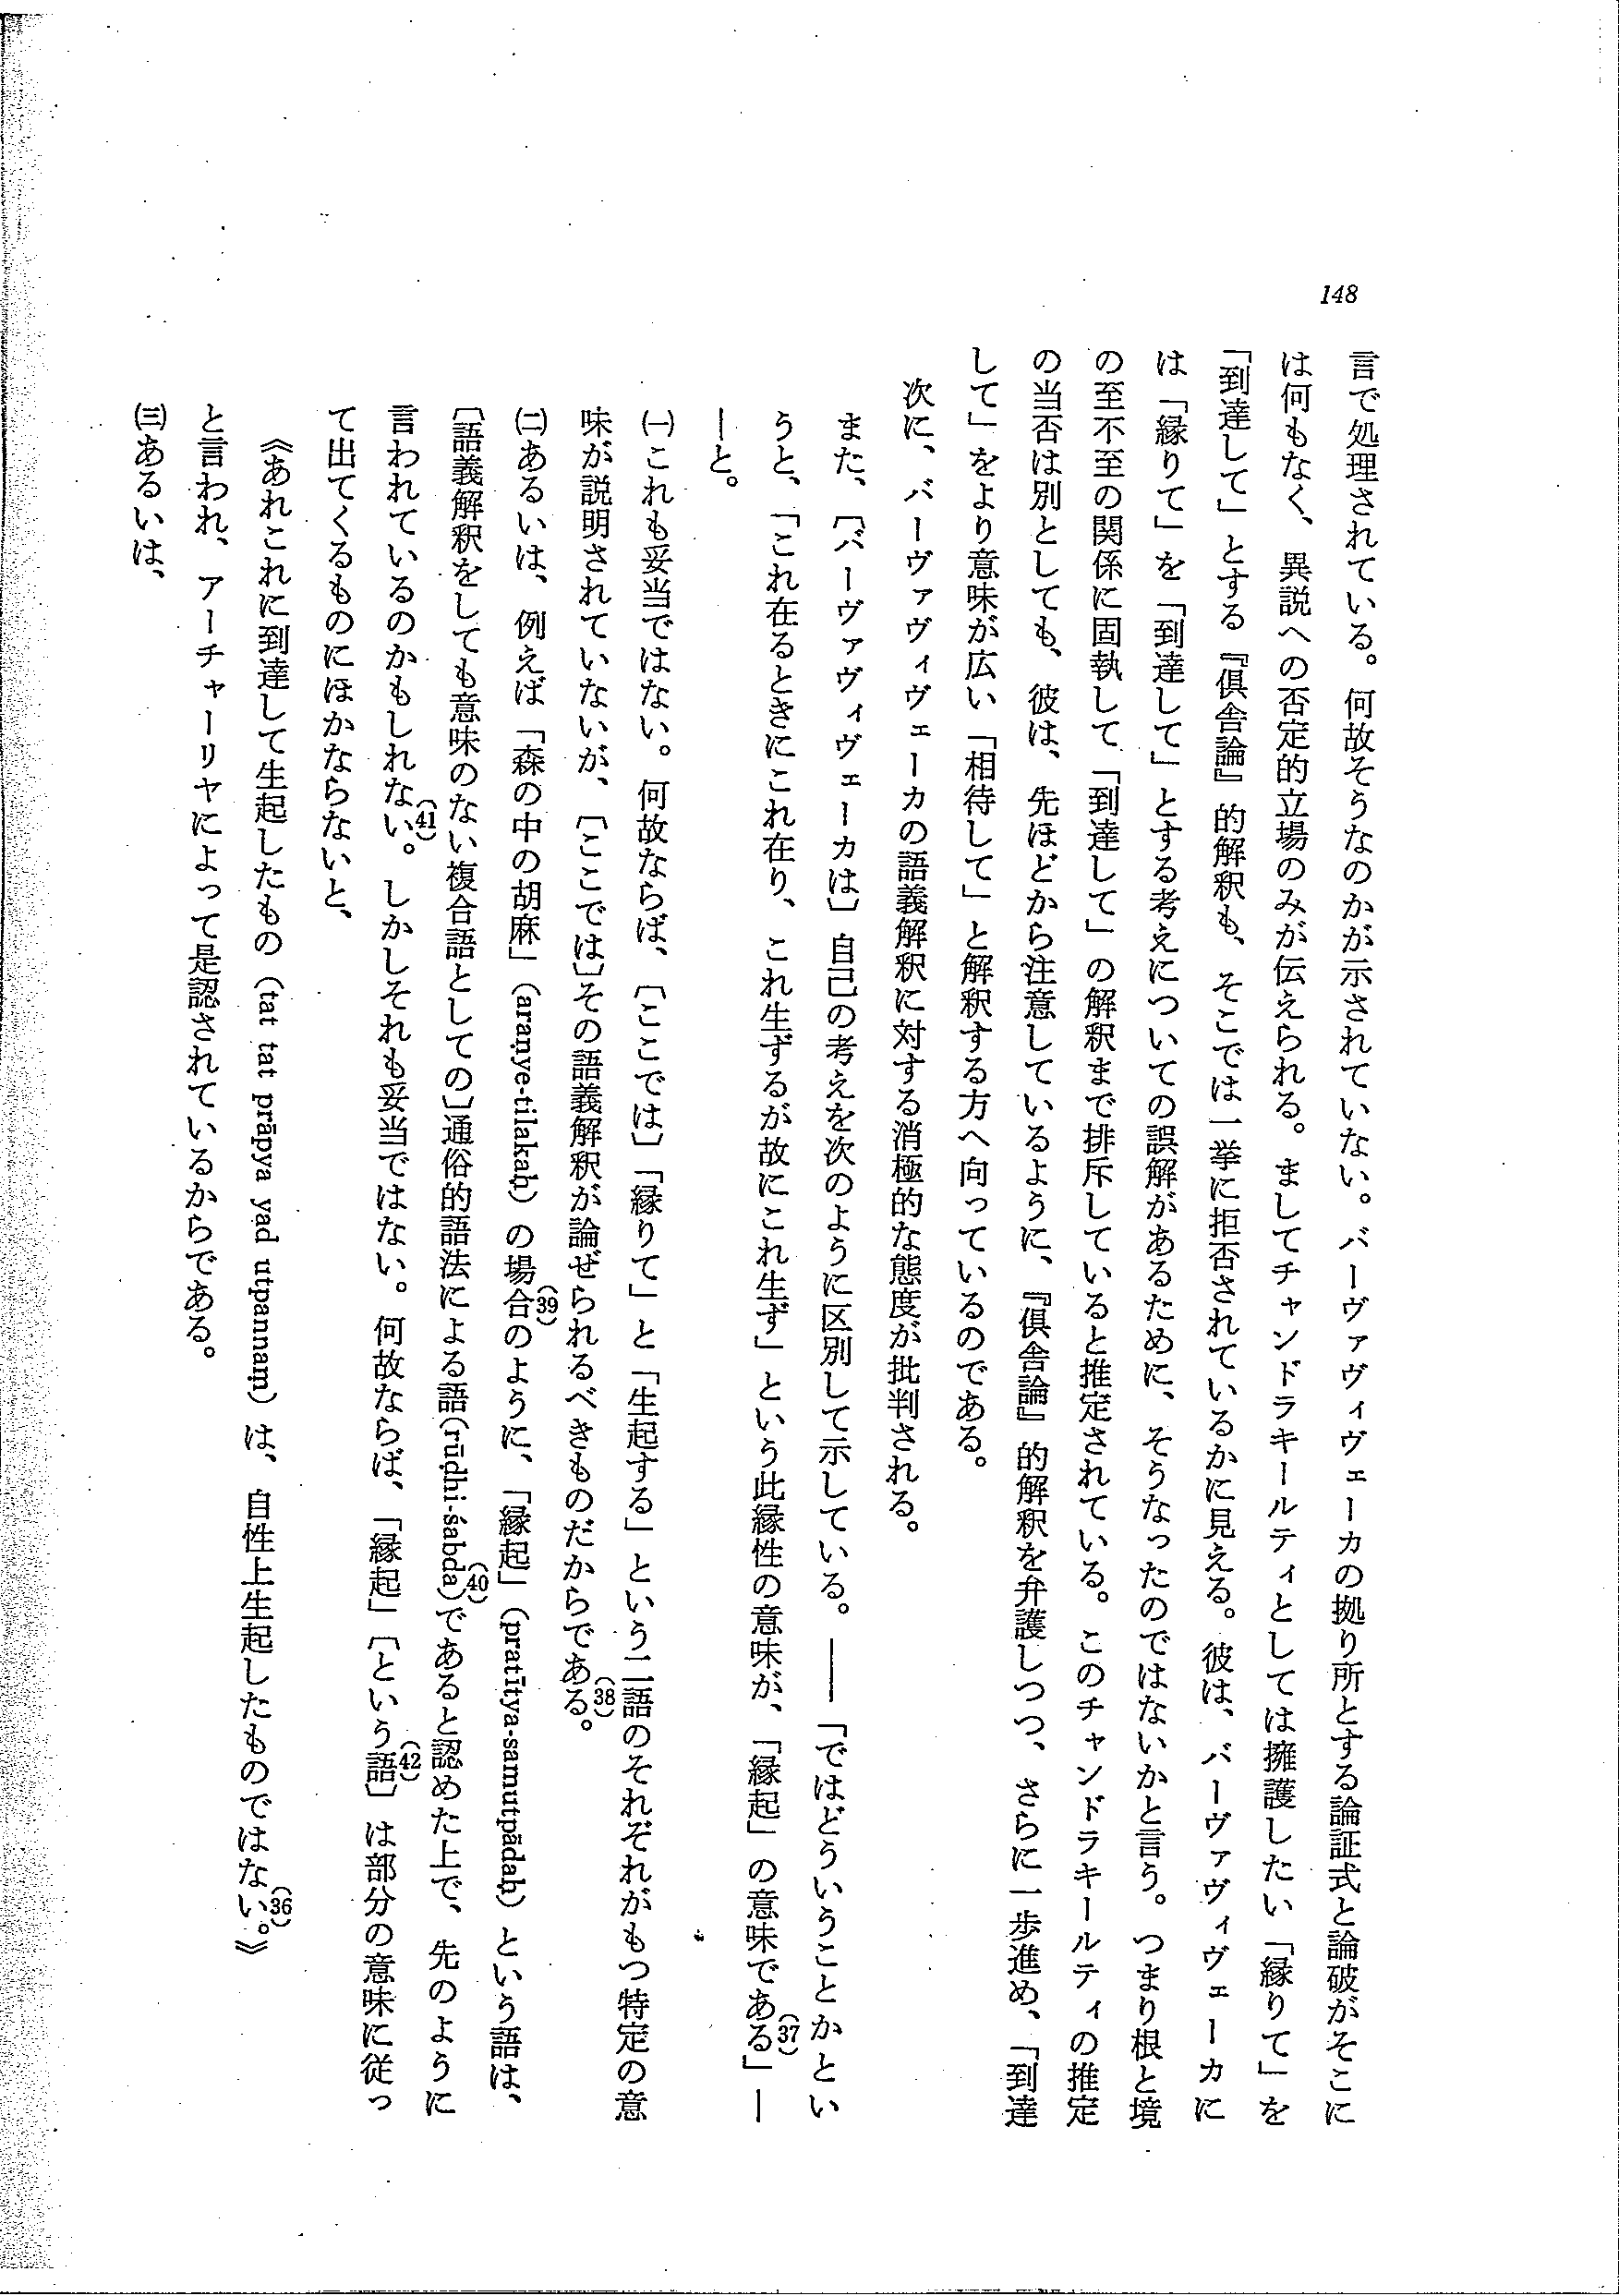 148
言で処理されている。何故そうなのかが示されていない。バーヴァヴィヴェーカの拠り所とする論証式と論破がそこに
は何もなく、異説への否定的立場のみが伝えられる。ましてチャンドラキールティとしては擁護したい「縁りて」を
「到達して」とする『倶舎論』的解釈も、そこでは一挙に拒否されているかに見える。彼は、バーヴァヴィヴェーカに
は「縁りて」を「到達して」とする考えについての誤解があるために、そうなったのではないかと言う。つまり根と境
の至不至の関係に固執して「到達して」の解釈まで排斥していると推定されている。このチャンドラキールティの推定
の当否は別としても、彼は、先ほどから注意しているように、『倶舎論』的解釈を弁護しつつ、さらに一歩進め、「到達
して」をより意味が広い「相待して」と解釈する方へ向っているのである。
次に、バーヴァヴィヴェーカの語義解釈に対する消極的な態度が批判される。
また、〔バーヴァヴィヴェーカは〕自己の考えを次のように区別して示している。――「ではどういうことかとい
うと、「これ在るときにこれ在り、これ生ずるが故にこれ生ず」という此縁性の意味が、「縁起」の意味である(37)」―
―と。
㈠これも妥当ではない。何故ならば、〔ここでは〕「縁りて」と「生起する」という二語のそれぞれがもつ特定の意
味が説明されていないが、〔ここでは〕その語義解釈が論ぜられるべきものだからである(38)。
㈡あるいは、例えば「森の中の胡麻」（araṇye-tilakaḥ）の場合(39)のように、「縁起」（pratītya-samutpādaḥ）という語は、
〔語義解釈をしても意味のない複合語としての〕通俗的語法による語（rūḍhi-śabda）(40)であると認めた上で、先のように
言われているのかもしれない(41)。しかしそれも妥当ではない。何故ならば、「縁起」〔という語(42)〕は部分の意味に従っ
て出てくるものにほかならないと、
《あれこれに到達して生起したもの（tat tat prāpya yad utpannaṃ）は、自性上生起したものではない(36)。》
と言われ、アーチャーリヤによって是認されているからである。
㈢あるいは、